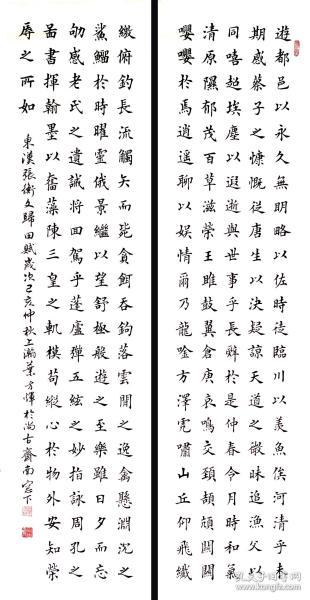 遊都邑以永久無明略以佐時徒臨川以羨魚俟河清乎未
期感蔡子之慷慨從唐生以決疑諒天道之微昧追漁父以
同嘻超埃塵以遐逝與世事乎長辭於是仲春令月時和氣
清原隰郁茂百草滋榮王雎鼓翼倉庚哀鳴交頸頡頏關關
嚶嚶於焉逍遥聊以娱情爾乃龍唫方澤虎嘯山丘仰飛纖
繳俯釣長流觸矢而斃貪餌吞鉤落雲閒之逸禽懸淵沉之
鯊鰡於時曜靈俄景繼以望舒極般遊之至樂雖日夕而忘
劬感老氏之遺誡將回駕乎蓬廬彈五弦之妙指詠周孔之
啚書揮翰墨以奮藻陳三皇之軌模苟縱心於物外安知榮
辱之所如
東漢張衡文歸田賦歲次己亥仲秋上澣葉方於尚古齋南窗下